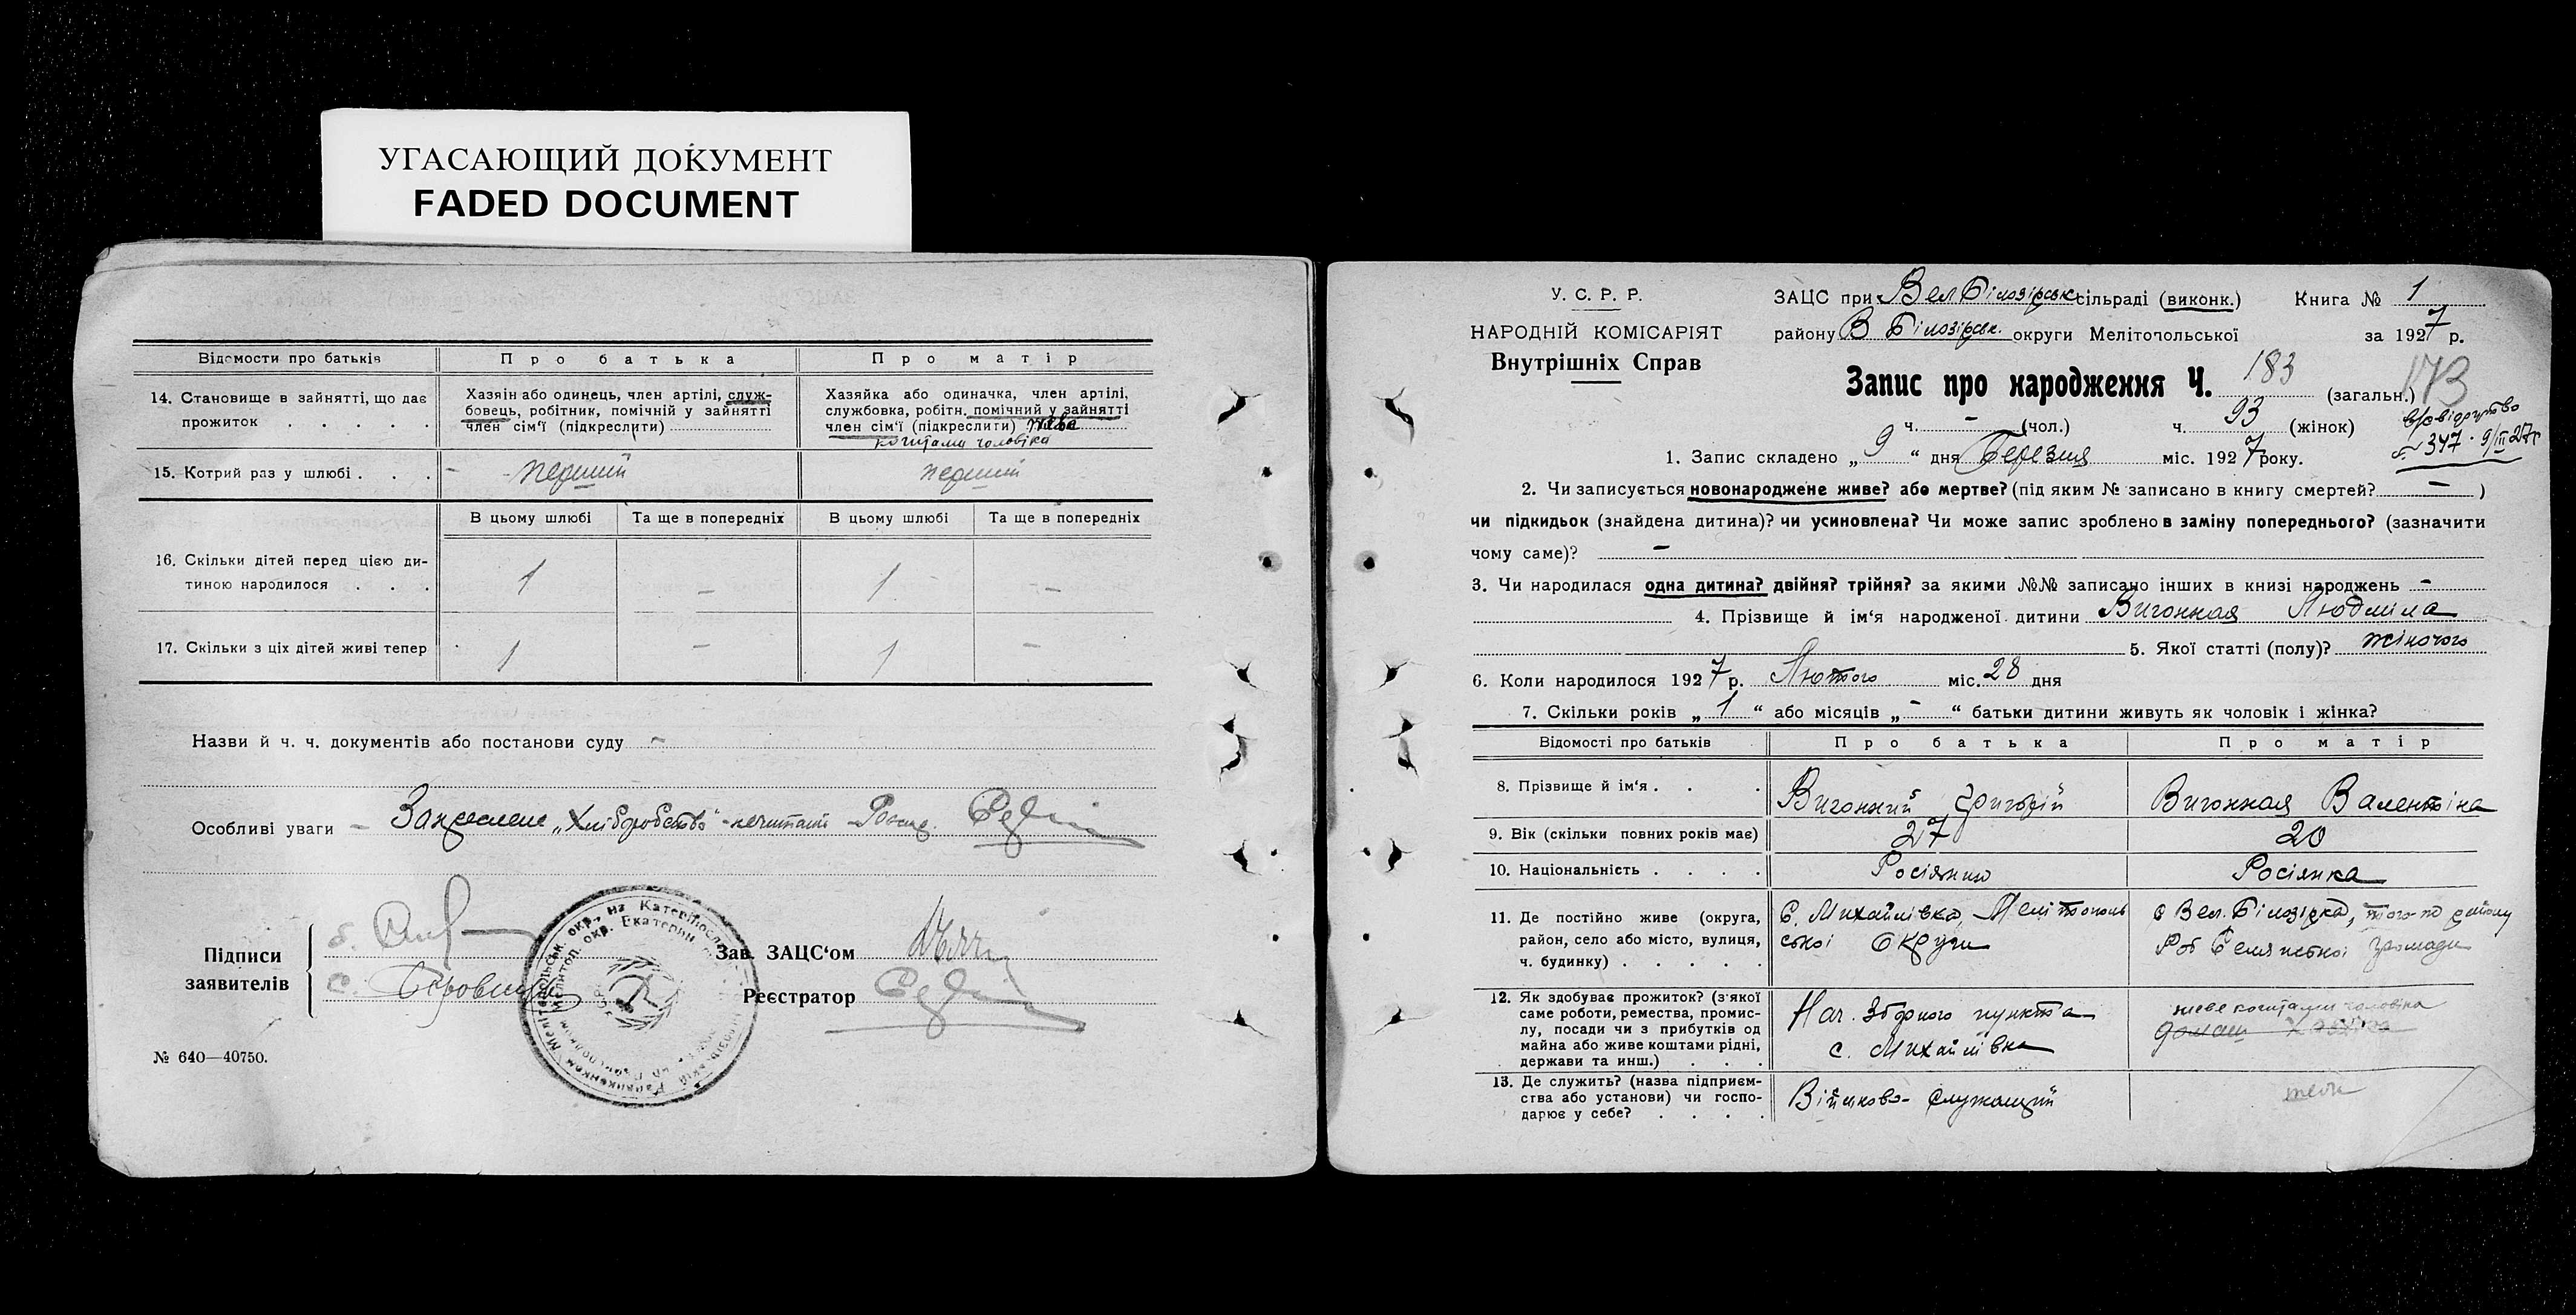 УГАСАЮЩИЙ ДОКУМЕНТ
FADED DOCUMENT
Відомости про батьків
Про батька
Про матір
14. Становище в зайнятті, що дає прожиток . . . . .
Хазяін або одинець, член артілі, служ-
бовець, робітник, помічній у зайнятті
член сім'ї (підкреслити)
Хазяйка або одиначка, член артілі,
службовка, робітн. помічний у зайнятті
член сім'ї (підкреслити) живе
коштами чоловіка
15. Котрий раз у шлюбі . . .
- перший
перший
В цьому шлюбі
Та ще в попередніх
В цьому шлюбі
Та ще в попередніх
16. Скільки дітей перед цією ди-
тиною народилося . . .
1
-
1
-
17. Скільки з ціх дітей живі тепер
1
-
1
-
Назви й ч. ч. документів або постанови суду -
Особливі уваги - Закреслене „Хліборобство"
Підписи
заявителів
Зав. ЗАЦС'ом
Реєстратор
№ 640—40750.
У. С. Р. Р.
НАРОДНІЙ КОМІСАРІЯТ
Внутрішніх Справ
ЗАЦС при Вел Білозірськ сільраді (виконк.) Книга № 1
району В Білозірськ. округи Мелітопольської за 1927 р.
Запис про народження Ч. 183 (загальн.) 173
ч. - (чол.) ч. 93 (жінок)
№ 347 9/III 27р
1. Запис складено „ 9 " дня Березня міс. 1927 року.
2. Чи записується новонароджене живе? або мертве? (під яким № записано в книгу смертей? - )
чи підкидьок (знайдена дитина)? чи усиновлена? Чи може запис зроблено в заміну попереднього? (зазначити
чому саме)? -
3. Чи народилася одна дитина? двійня? трійня? за якими №№ записано інших в книзі народжень -
4. Прізвище й ім'я народженої дитини Вигонная Людміла
5. Якої статті (полу)? жіночого
6. Коли народилося 1927 р. Лютого міс. 28 дня
7. Скільки років „ 1 " або місяців „ - " батьки дитини живуть як чоловік і жінка?
Відомості про батьків
Про батька
Про матір
8. Прізвище й ім'я . . .
Вигонний Григорій
Вигонная Валентіна
9. Вік (скільки повних років має)
27
20
10. Національність . . . .
Росіянин
Росіянка
11. Де постійно живе (округа,
район, село або місто, вулиця,
ч. будинку) . . . . .
С. Михайлівка, Мелітополь
ської Округи
с Вел. Білозірка, того-то району
громади
12. Як здобуває прожиток? (з якої
саме роботи, ремества, промис-
лу, посади чи з прибутків од
майна або живе коштами рідні,
держави та инш.) . . .
Нач. Зборного пункта
с. Михайлівка
живе коштами чоловіка
13. Де служить? (назва підприєм-
ства або установи) чи госпо-
дарює у себе? . . . .
Військово-служащий